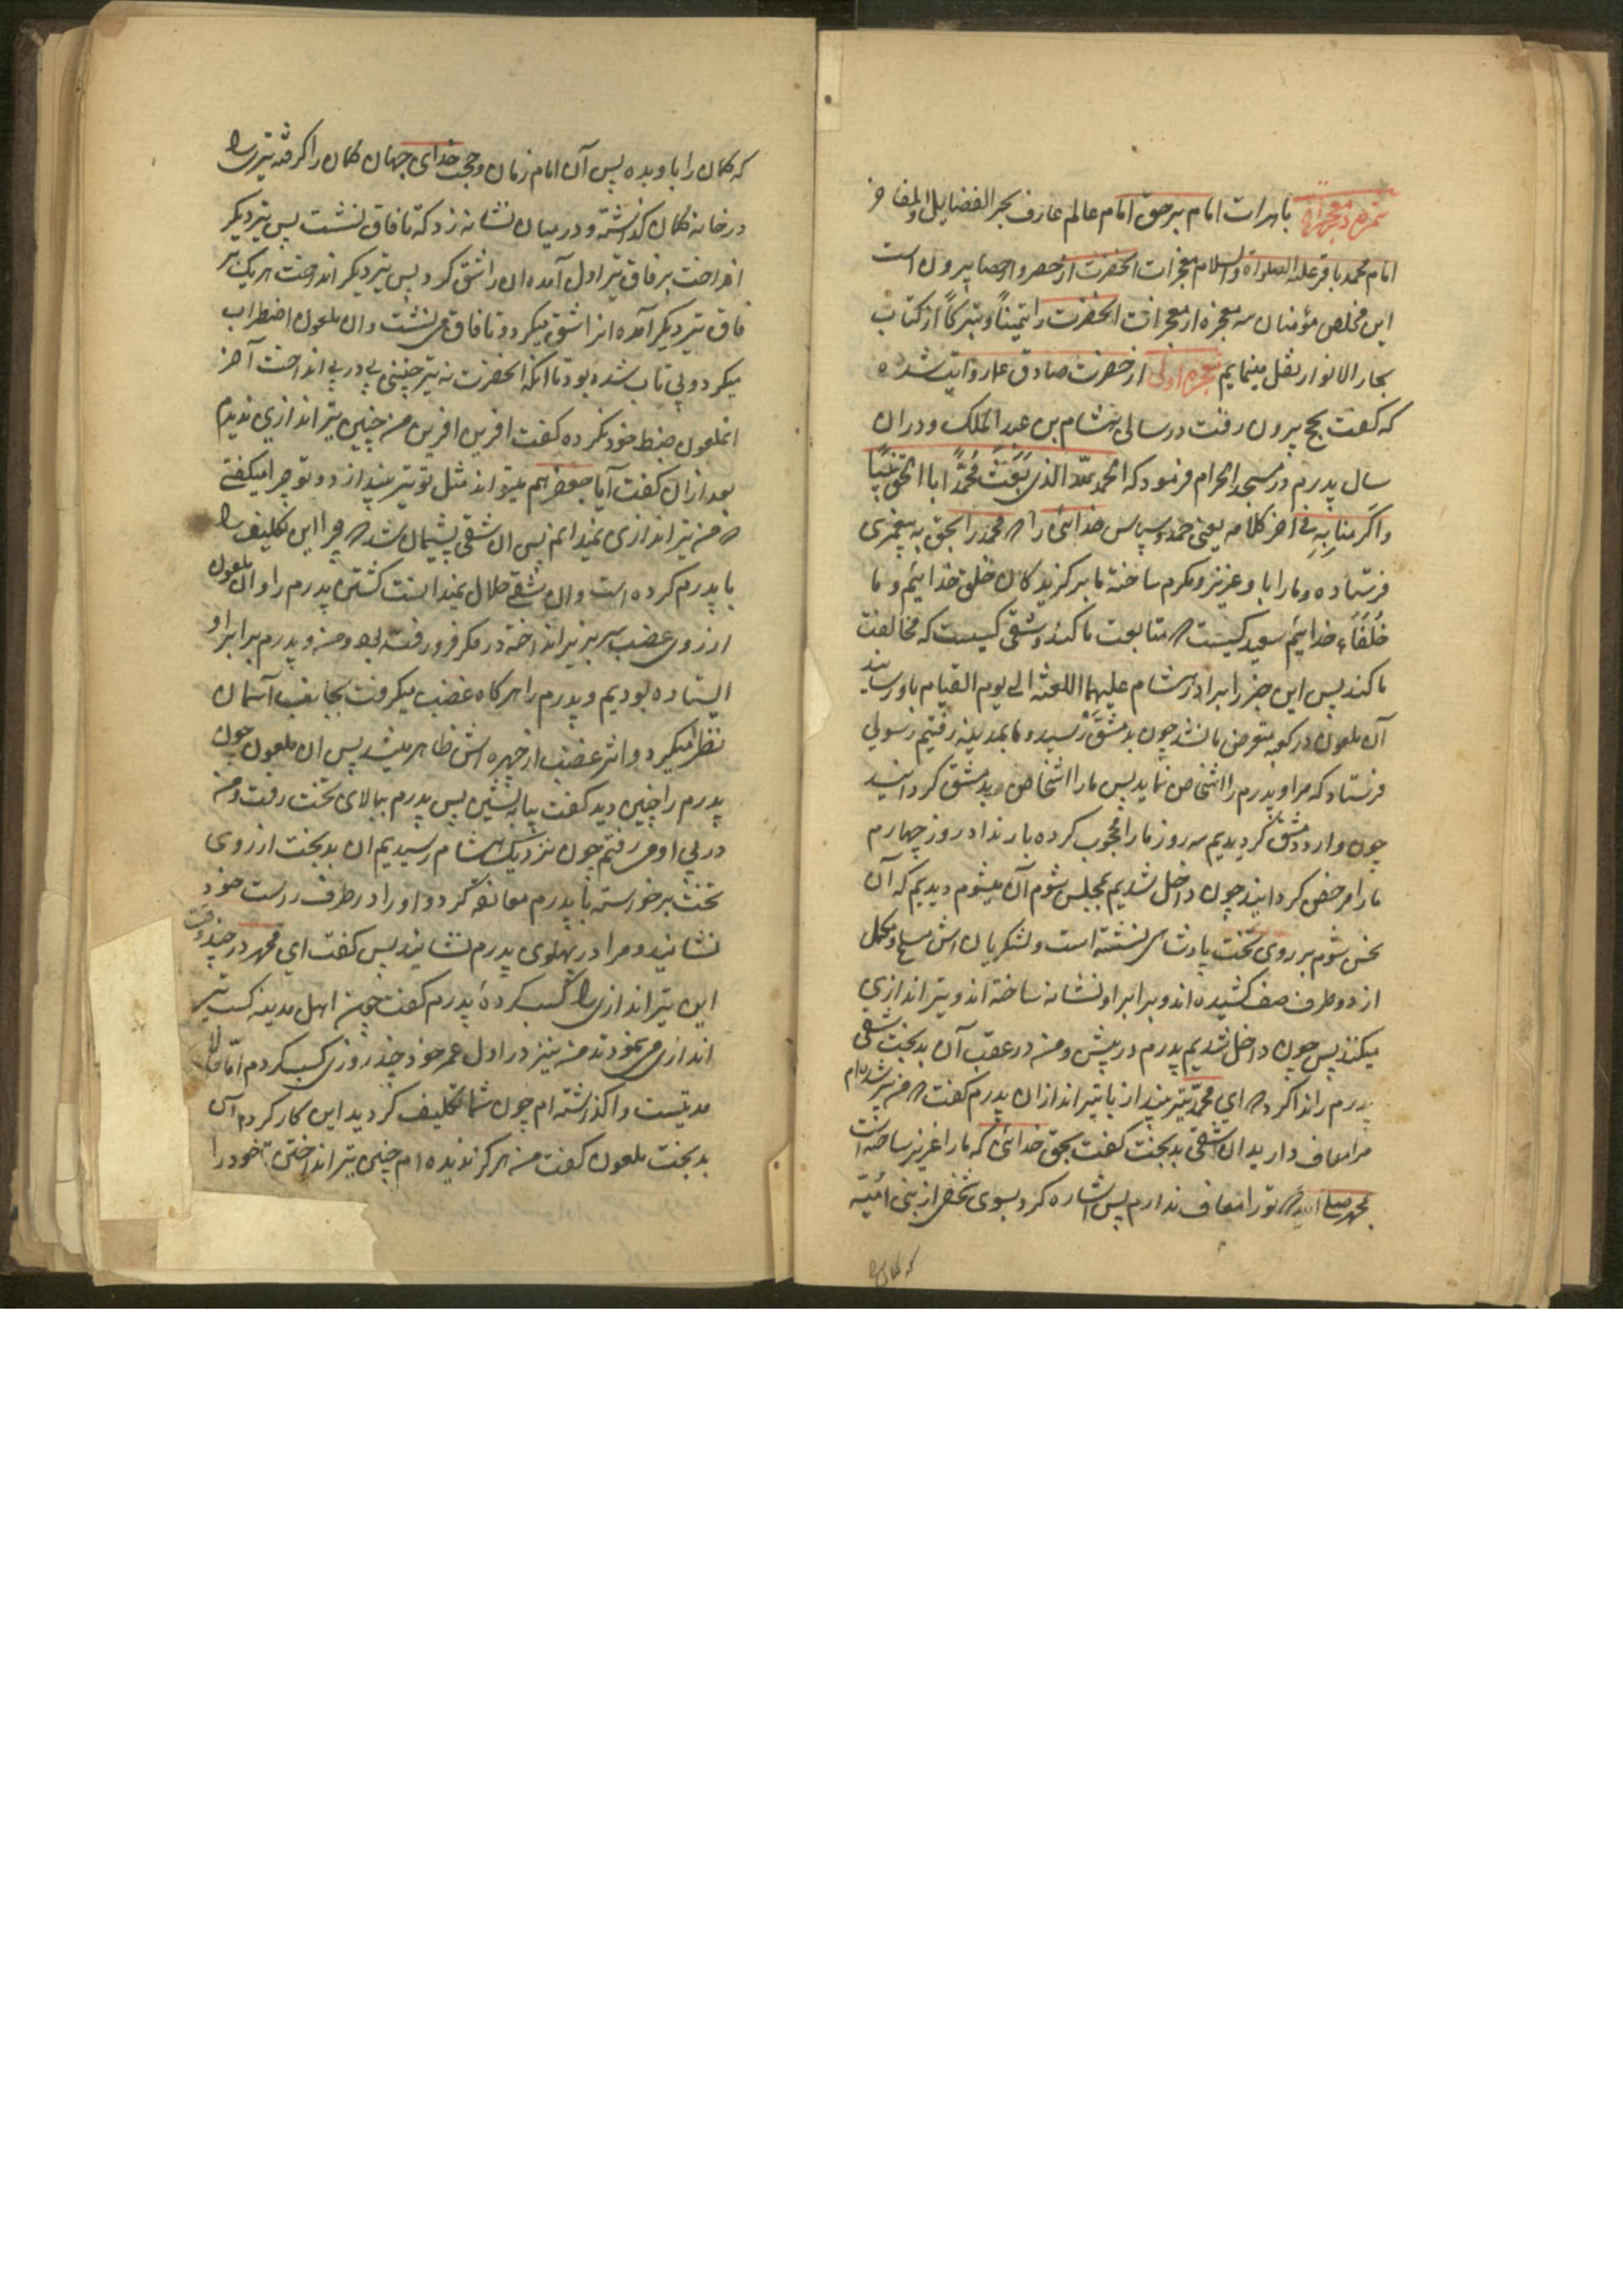 ثمره در معجزات باهرات امام برحق امام عالم عارف بحر الفضایل والمفاخر
امام محمد باقر علیه الصلواة والسلام معجزات انحضرت از حصر و احصا بیرون است
این مخلص مؤمنان سه معجزه از معجزات انحضرت را تیمناً و تبرکاً از کتاب
بحار الانوار نقل مینمایم معجزه اولی از حضرت صادق ع روایت شده
که گفت بحج بیرون رفت در سالی هشام بن عبد الملک و در ان
سال پدرم در مسجد الحرام فرمود که الحمد لله الذی بَعَثَ مُحَمَّداً بالحق نَبِیّاً
واَکرَمَنا بِهِ فی اخر کلامه یعنی حمد و سپاس خدائی را که محمد را بحق به پیغمبری
فرستاده و مارا باو عزیز و مکرم ساخته ما برگزیدگان خلق خدائیم و ما
خُلَفَاء خدائیم سعید کیست که متابعت ما کند و شقی کیست که مخالفت
ما کند پس این خبر را برادر هشام علیهما اللعنة الی یوم القیام باو رسانید
آن ملعون در کعبه متعرض ما نشد چون بدمشق رسید و ما بمدینه رفتیم رسولی
فرستاد که مرا و پدرم را اشخاص نماید پس ما را اشخاص بدمشق گردانید
چون وارد دمشق گردیدیم سه روز ما را محجوب کرده بار نداد روز چهارم
ما را مرخص گردانید چون داخل شدیم بمجلس شوم آن میشوم دیدیم که آن
نحس شوم بر روی تخت پادشاهی نشسته است و لشکریان اش مسلح و مکمل
از دو طرف صف کشیده اند و برابر او نشانه ساخته اند و تیر اندازی
میکنند پس چون داخل شدیم پدرم در پیش و من در عقب آن بدبخت شقی
پدرم را ندا کرد که ای محمد تیر بینداز با تیر اندازان پدرم گفت که من پیر شده ام
مرا معاف دارید ان شقی بدبخت گفت بحق خدائی که ما را عزیز ساخته است
بمحمد صلی الله که تو را معاف ندارم پس اشاره کرد بسوی شخص از بنی امیه
که کمان
که کمان را باو بده پس آن امام زمان و حجت خدای جهان کمان را گرفته تیری را
در خانه کمان گذاشته و در میان نشانه زد که تا فاق نشست پس تیر دیگر
انداخت بر فاق تیر اول آمده ان را شق کرد پس تیر دیگر انداخت هر یک بر
فاق تیر دیگر آمده انرا شق میکرد و تا فاق می نشست و ان ملعون اضطراب
میکرد و بی تاب شده بود تا انکه انحضرت نه تیر چنینی پی در پی انداخت آخر
انملعون ضبط خود نکرده گفت افرین افرین من چنین تیر اندازی ندیدم
بعد از ان گفت آیا جعفر هم میتواند مثل تو تیر بیندازد و تو چرا میگفتی
که من تیر اندازی نمیدانم پس ان شقی پشیمان شد که چرا این تکلیف را
با پدرم کرده است و ان شقی حلال میدانست کشتن پدرم را و ان ملعون
از روی غضب سر بزیر انداخته در فکر فرو رفته بود و من و پدرم برابر او
ایستاده بودیم و پدرم را هر گاه غضب میگرفت بجانب آسمان
نظر میکرد و اثر غضب از چهره اش ظاهر میشد پس ان ملعون چون
پدرم را چنین دید گفت بیا بنشین پس پدرم ببالای تخت رفت و من
در پی او می رفتم چون نزدیک هشام رسیدیم ان بدبخت از روی
تخت برخواسته با پدرم معانقه کرد و او را در طرف راست خود
نشانید و مرا در پهلوی پدرم نشانید پس گفت ای محمد در چند وقت
این تیر اندازی را کسب کردهٔ پدرم گفت چون اهل مدینه کسب تیر
اندازی می نمودند من نیز در اول عمر خود چند روزی کسب کردم امّا حالا
مدتیست واگذاشته ام چون شما تکلیف کردید این کار کردم آن
بدبخت ملعون گفت من هرگز ندیده ام چنین تیر انداختن خود را